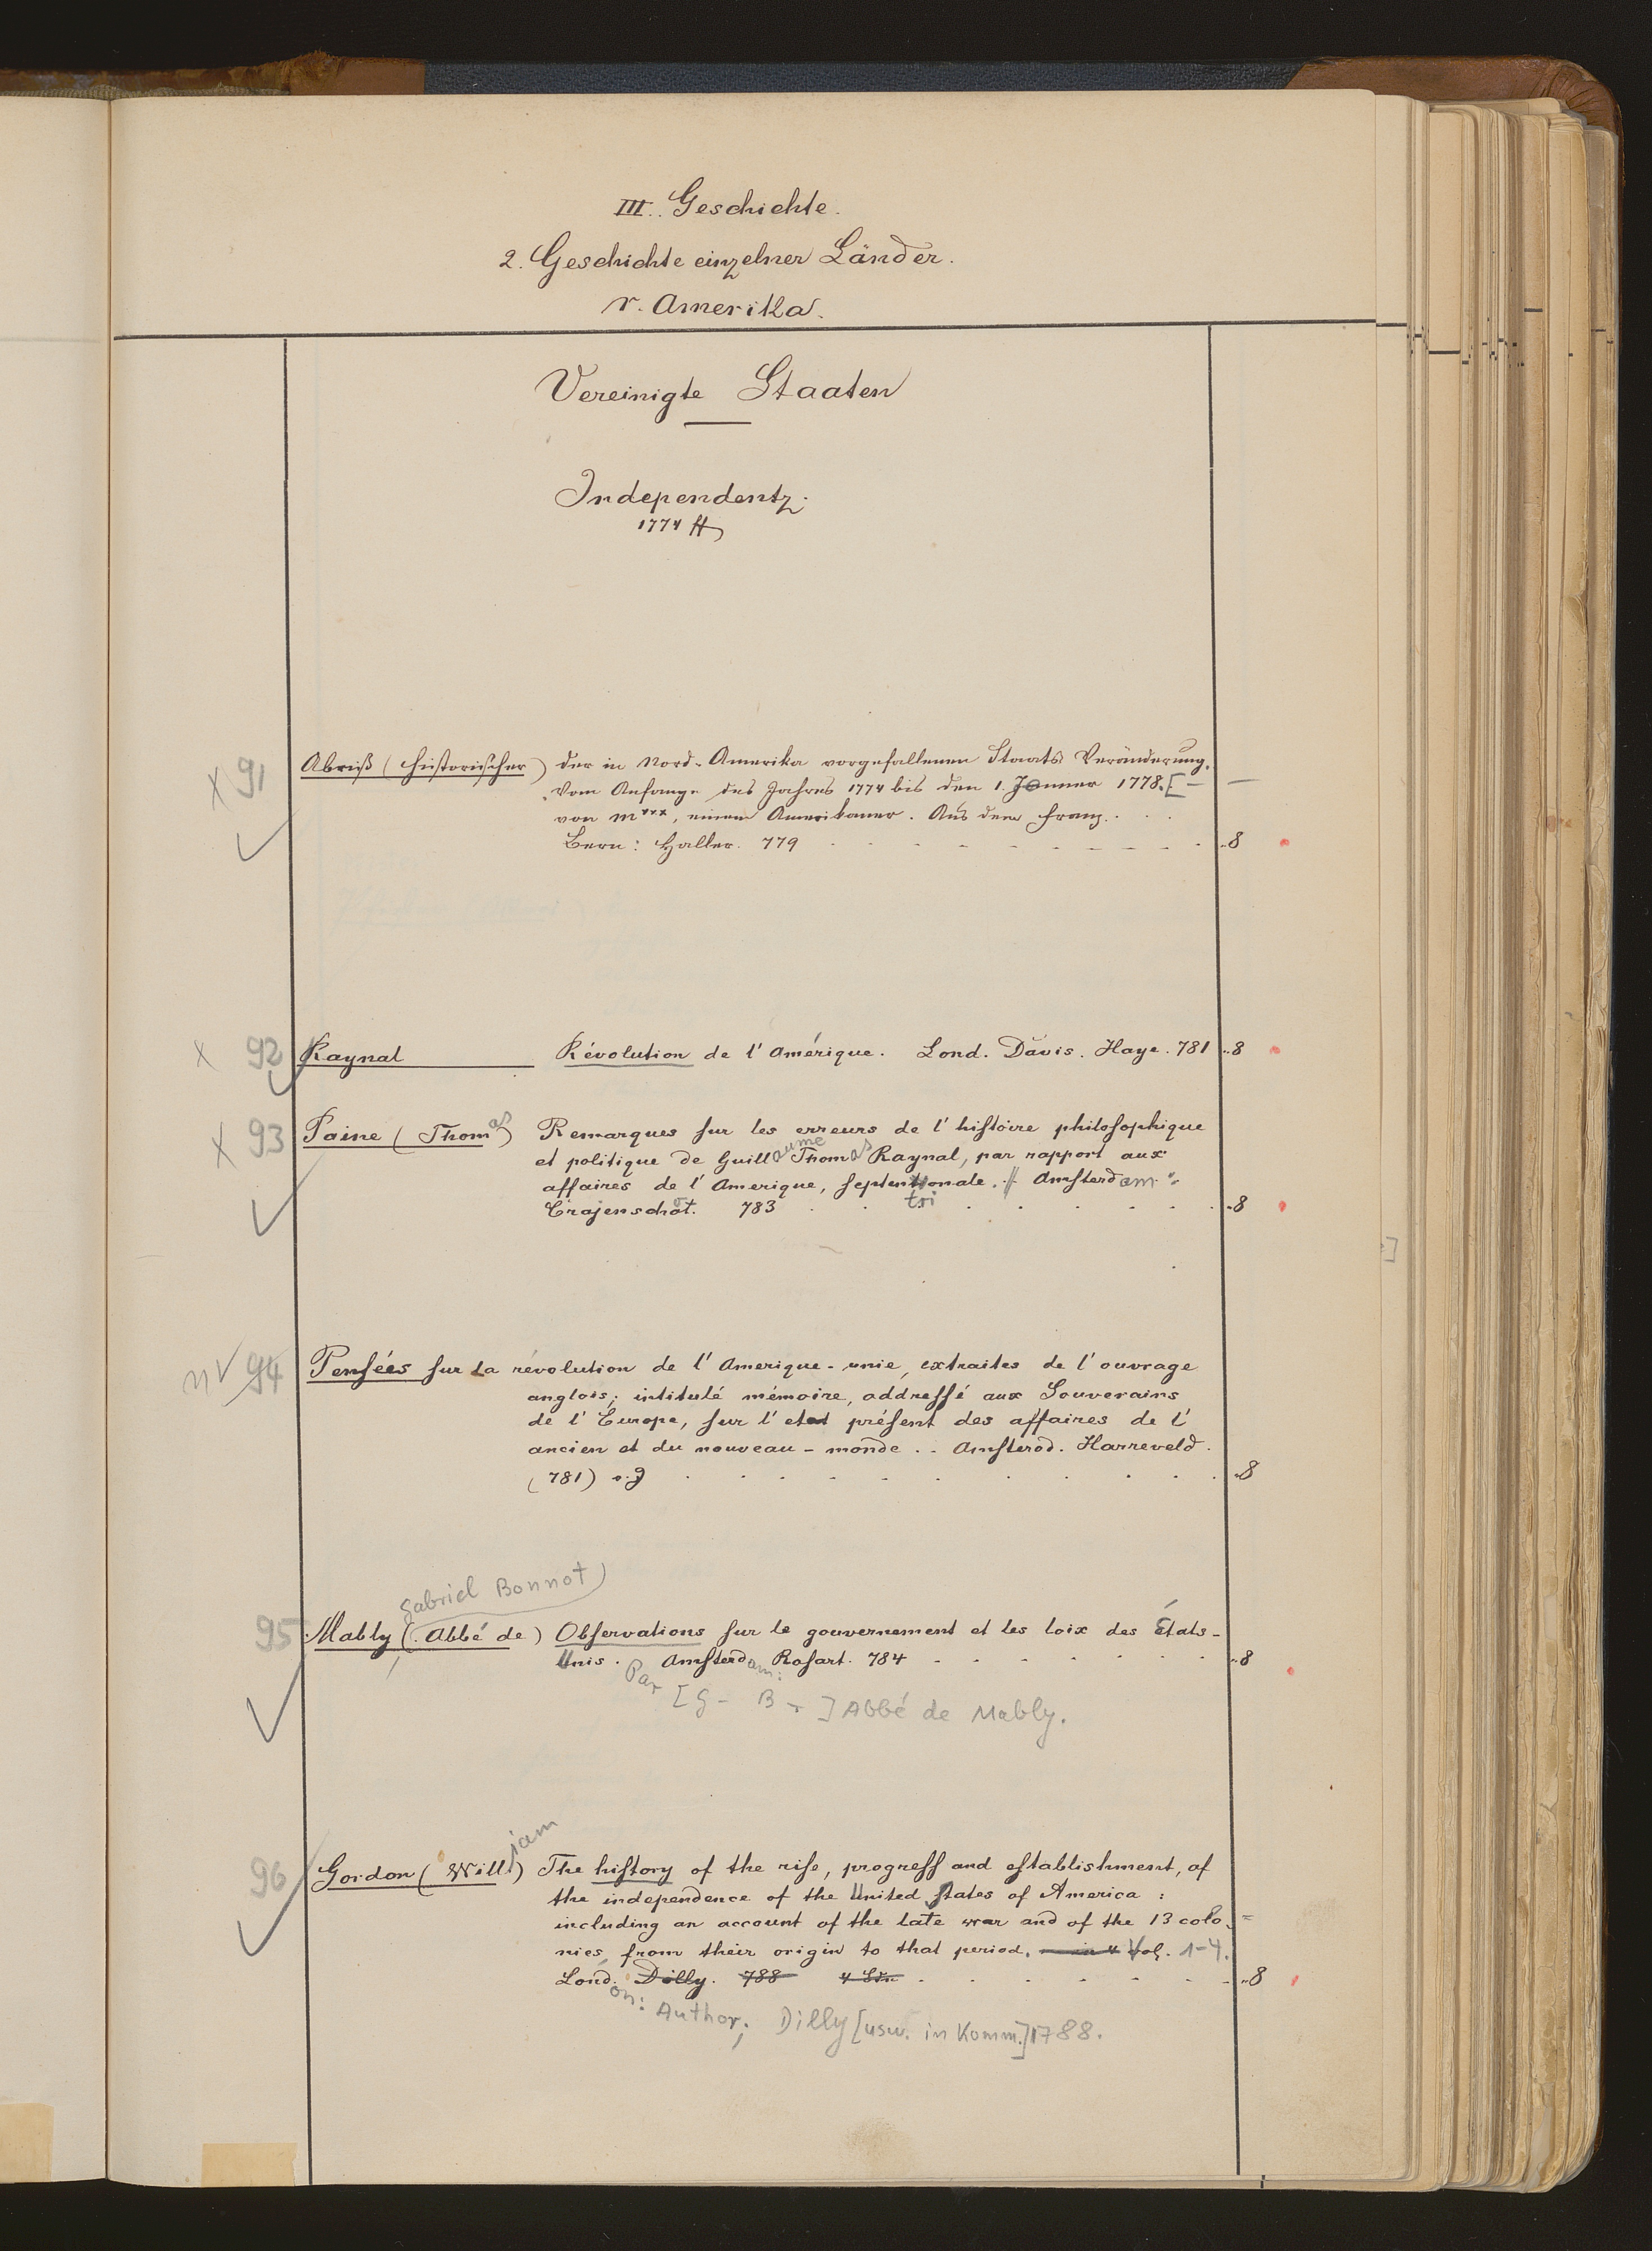 III. Geschichte.
2. Geschichte einzelner Länder.
r. Amerika.
Vereinigte Staaten
Independentz.
1774 ff
x 91 Abriß (historischer) der in Nord-Amerika vorgefallenen Staats Veränderung.
Vom Anfange des Jahres 1774 bis den 1. Jenner 1778. [—
von M***, einem Amerikaner. Aus dem Franz. . .
Bern: Haller. 779 8
x 92 Raynal Révolution de l'Amérique. Lond. Davis. Haye. 781 8
x 93 Paine (Thomas) Remarques sur les erreurs de l'histoire philosophique
et politique de Guillaume Thomas Raynal, par rapport aux
affaires de l'Amerique, septentrionale. // Amsterdam:
tri
Crajenschot. 783 8
n v 94 Pensées sur la révolution de l'Amerique-unie, extraites de l'ouvrage
anglois; intitulé mémoire, addressé aux Souverains
de l'Europe, sur l'etat présent des affaires de l'
ancien et du nouveau-monde . . Amsterod. Harreveld.
(781) 8
Gabriel Bonnot)
95 Mably (Abbé de) Observations sur le gouvernement et les loix des États-
Unis. Amsterdam: Rosart. 784 8
Par [G- B-] Abbé de Mably.
96 Gordon (William) The history of the rise, progress and establishment, of
the independence of the United States of America:
including an account of the late war and of the 13 colo=
nies, from their origin to that period. in 4 Vol. 1-4.
Lond. Dilly. 788 8
on: Author; Dilly [usw. in Komm.] 1788.